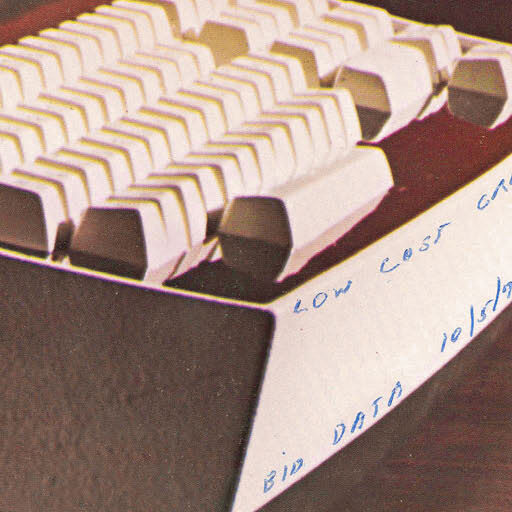 LOW COST
BID DATA 10/5/